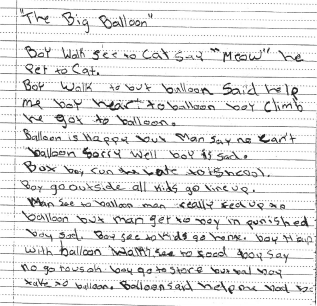 "The Big Balloon"
Boy Walk see to Cat say "Meow" he
Pet to Cat.
Boy Walk to but balloon Said help
me boy hear to balloon boy Climb
he got to balloon.
Balloon is happy but Man say no Can't
balloon Sorry Well boy is sad.
boy run late to school.
Boy go outside all kids go line up.
Man see to balloon man really to
balloon but man get to boy in punished
boy sad. Boy see to kids go home. boy
with balloon see to boy say
no go boy go to store but
take to balloon. Balloon said help me